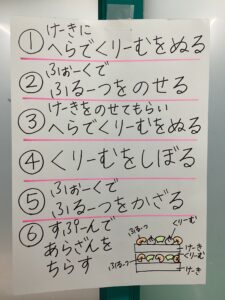 ① けーきに
へらでくりーむをぬる
② ふぉーくで
ふるーつをのせる
③ けーきをのせてもらい
へらでくりーむをぬる
④ くりーむをしぼる
⑤ ふぉーくで
ふるーつをかざる
⑥ すぷーんで
あらざんを
ちらす
ふるーつ
くりーむ
けーき
くりーむ
ふるーつ
けーき